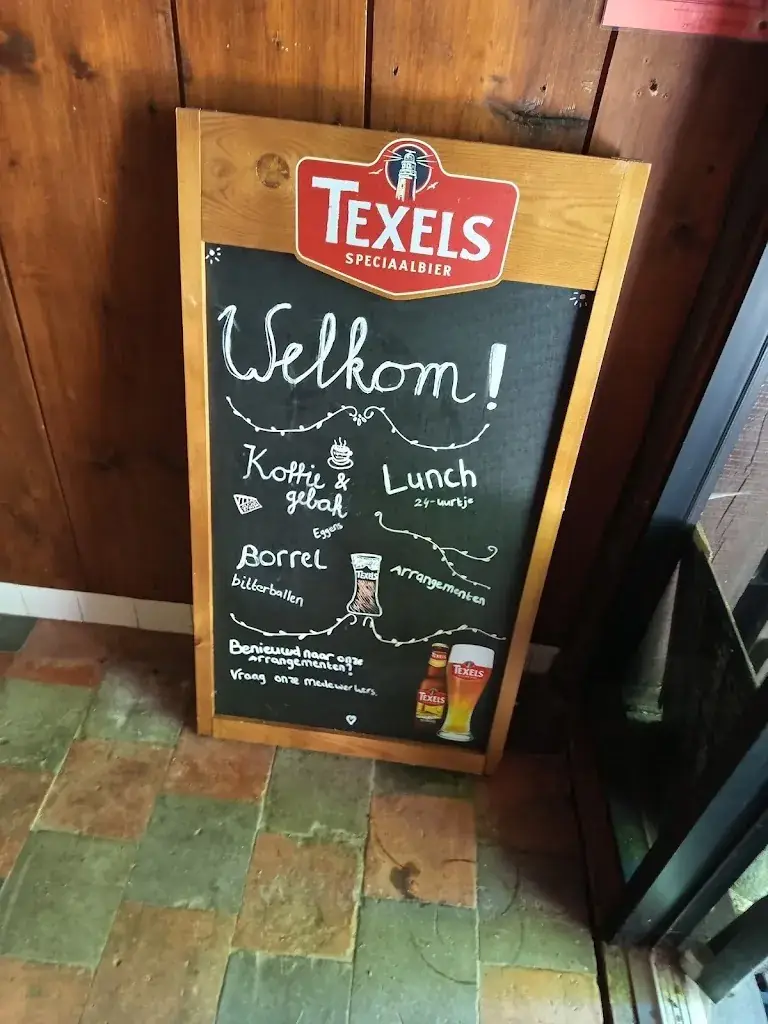 TEXELS
SPECIAALBIER
Welkom!
Koffie &
gebak
Eggens
Lunch
24-uurtje
Borrel
bitterballen
TEXELS
Arrangementen
Benieuwd naar onze
Arrangementen?
Vraag onze medewerkers.
TEXELS
TEXELS